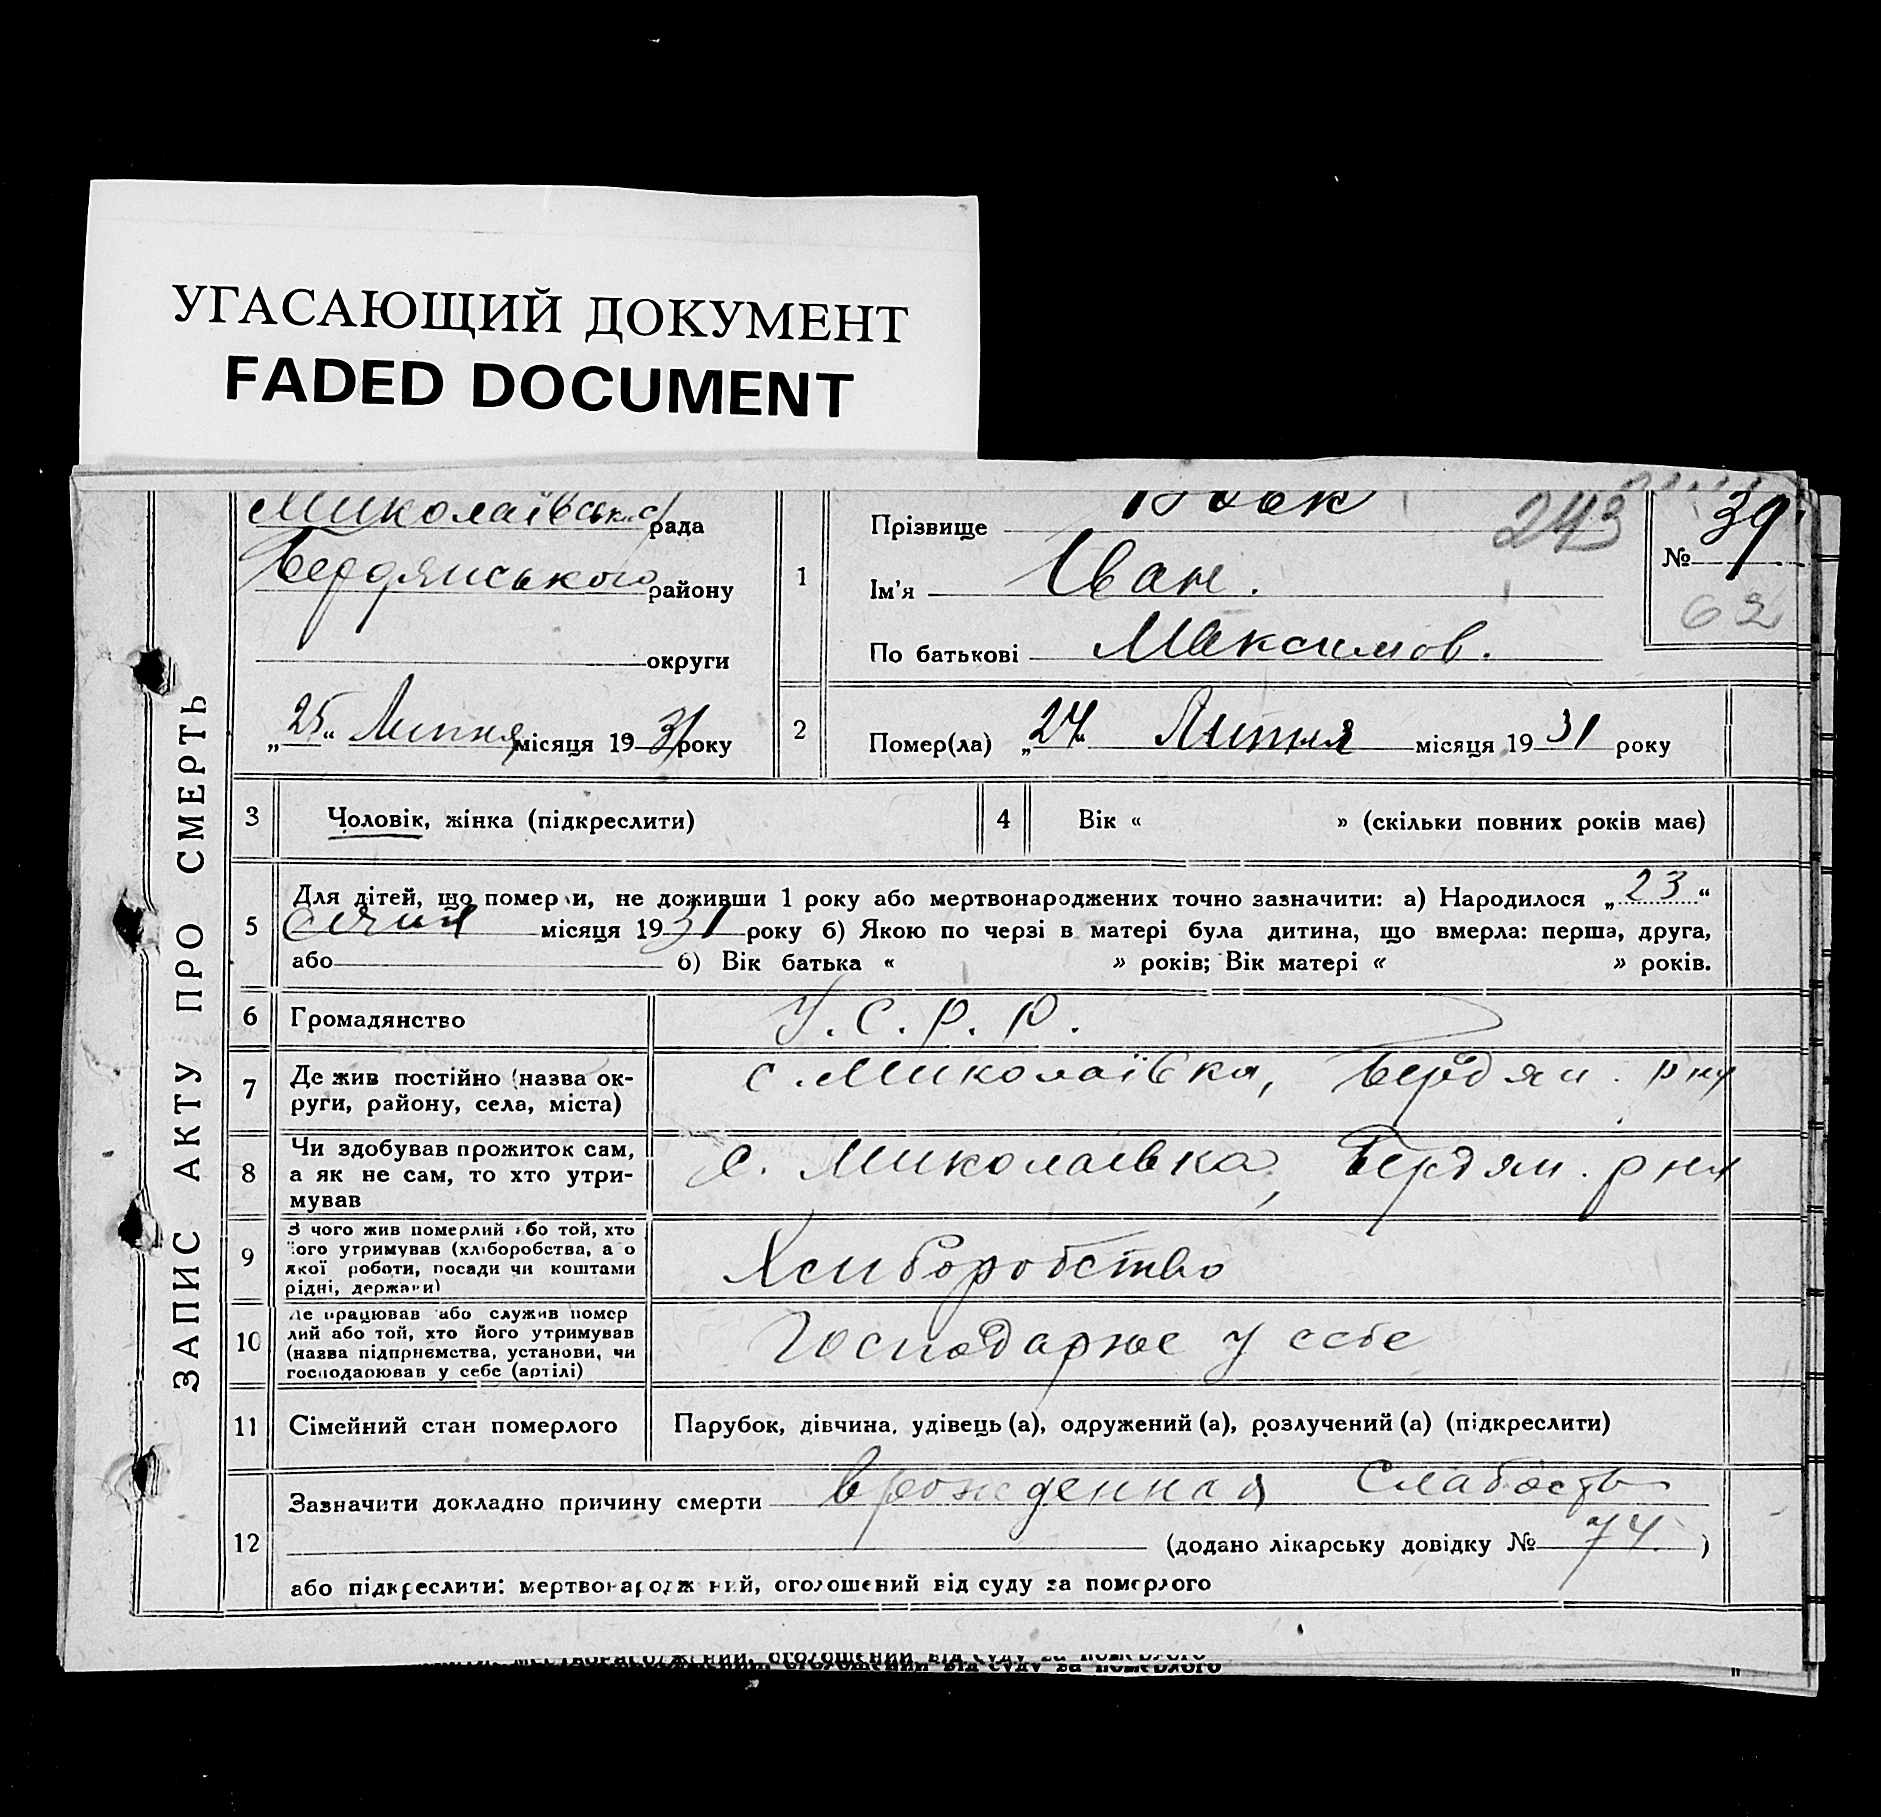 УГАСАЮЩИЙ ДОКУМЕНТ
FADED DOCUMENT
ЗАПИС АКТУ ПРО СМЕРТЬ
Миколаївська рада
Бердянського району
округи
„25“ Липня місяця 1931 року
1
Прізвище
243
Ім'я Іван.
По батькові Максимов.
№ 39
62
2
Помер(ла) „24“ Липня місяця 1931 року
3 Чоловік, жінка (підкреслити)
4 Вік « » (скільки повних років має)
5
Для дітей, що померли, не доживши 1 року або мертвонароджених точно зазначити: а) Народилося „23“
Січня місяця 1931 року б) Якою по черзі в матері була дитина, що вмерла: перша, друга,
або б) Вік батька « » років; Вік матері « » років.
6 Громадянство У.С.Р.Р.
7
Де жив постійно (назва ок-
руги, району, села, міста)
с. Миколаївка, Бердян. рну
8
Чи здобував прожиток сам,
а як не сам, то хто утри-
мував
с. Миколаївка, Бердян. рну
9
З чого жив померлий або той, хто
його утримував (хліборобства, а о
якої роботи, посади чи коштами
рідні, держави)
Хлиборобство
10
Де працював або служив помер
лий або той, хто його утримував
(назва підприємства, установи, чи
господарював у себе (артілі)
Господарює у себе
11 Сімейний стан померлого
Парубок, дівчина, удівець (а), одружений (а), розлучений (а) (підкреслити)
12
Зазначити докладно причину смерти врожденная слабость
(додано лікарську довідку № 74.)
або підкреслити: мертвонароджений, оголошений від суду за померлого
оголошений від суду за померлого